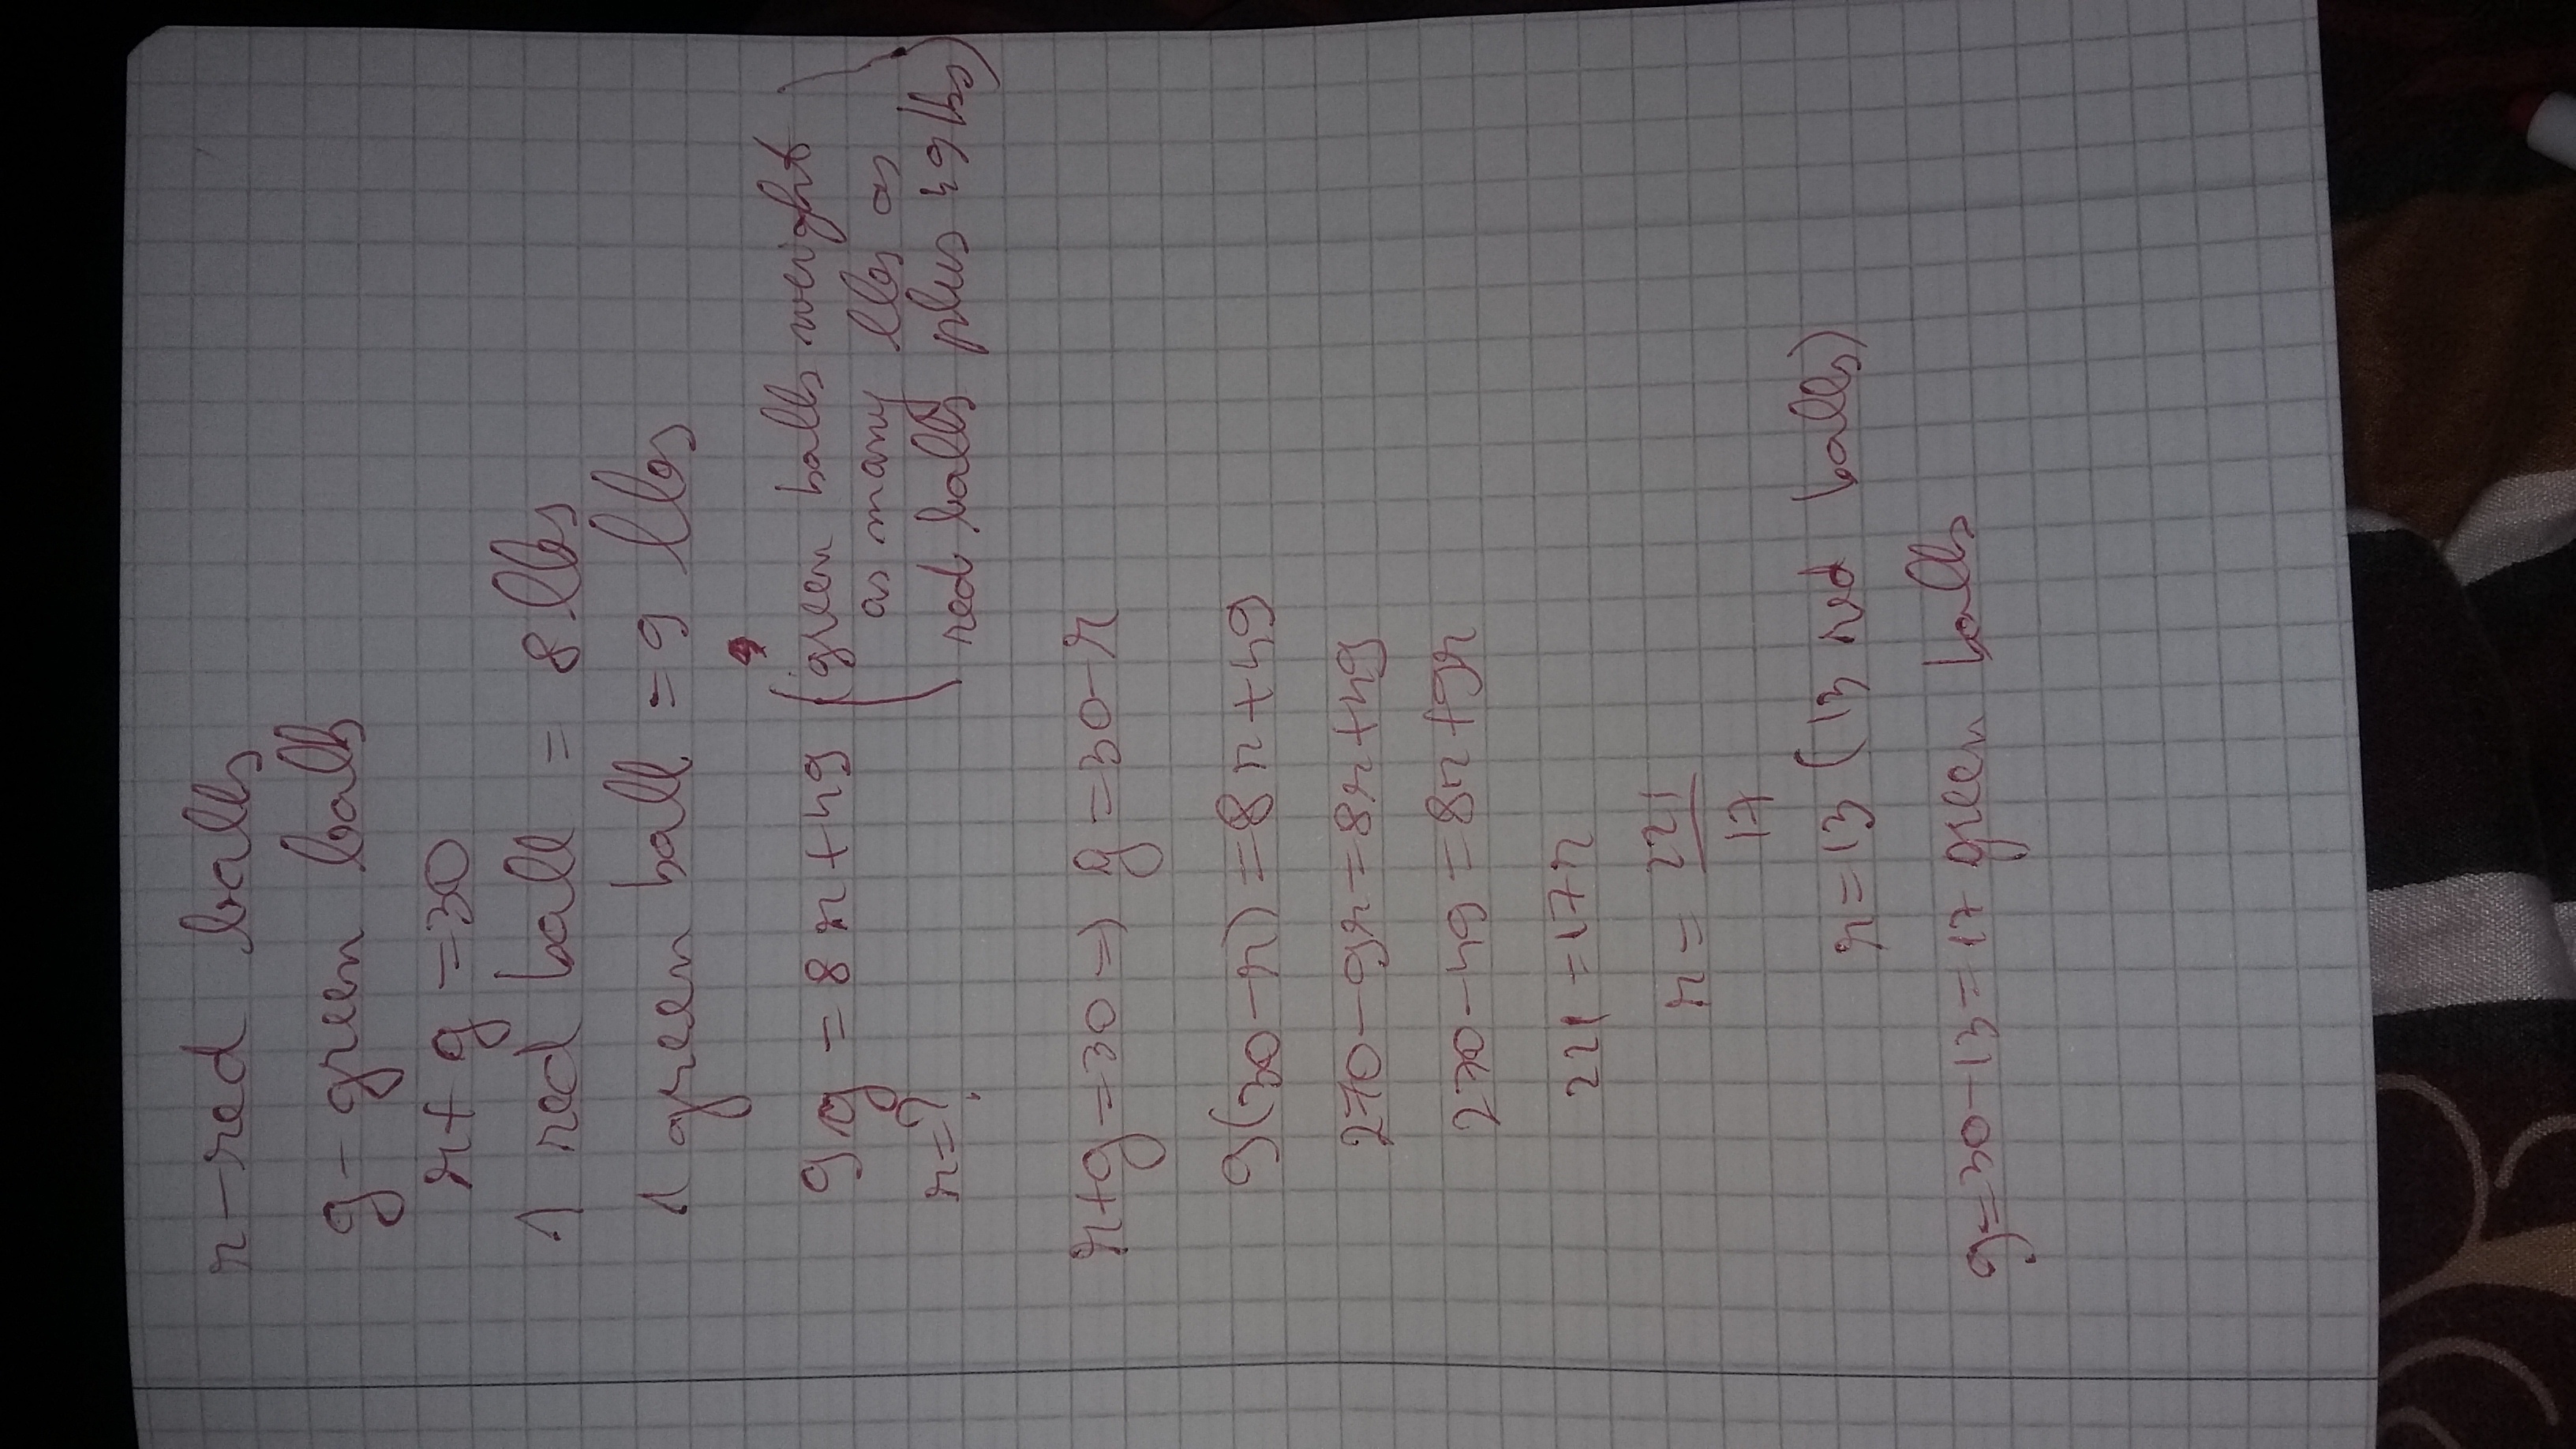 r - red balls
g - green balls
r + g = 30
1 red ball = 8 lbs
1 green ball = 9 lbs
9g = 8r + 49 (green balls weight
as many lbs as
red balls plus 49 lbs)
r = ?
r + g = 30 => g = 30 - r
9(30 - r) = 8r + 49
270 - 9r = 8r + 49
270 - 49 = 8r + 9r
221 = 17r
r = 221/17
r = 13 (13 red balls)
g = 30 - 13 = 17 green balls